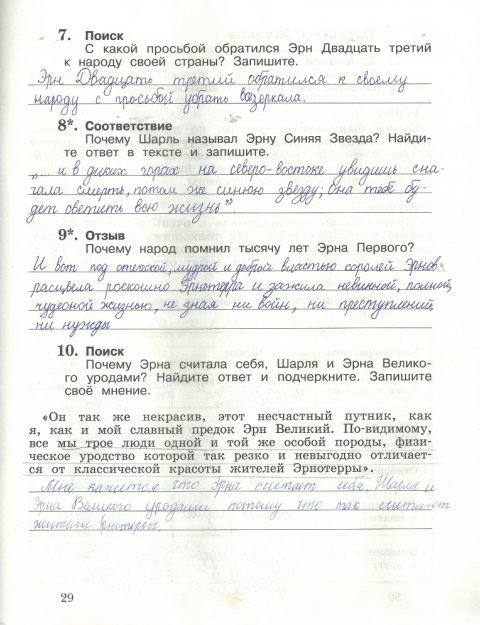 7. Поиск
С какой просьбой обратился Эрн Двадцать третий
к народу своей страны? Запишите.
Эрн Двадцать третий обратился к своему
народу с просьбой убрать все зеркала.
8*. Соответствие
Почему Шарль называл Эрну Синяя Звезда? Найди-
те ответ в тексте и запишите.
„... и в диких горах на северо-востоке увидишь сна-
чала смерть, потом же синюю звезду; она тебе бу-
дет светить всю жизнь".
9*. Отзыв
Почему народ помнил тысячу лет Эрна Первого?
И вот под отеческой, мудрой и доброй властью королей Эрнов
расцвела роскошно Эрнотерра и зажила невинной, полной,
чудесной жизнью, не зная ни войн, ни преступлений,
ни нужды
10. Поиск
Почему Эрна считала себя, Шарля и Эрна Велико-
го уродами? Найдите ответ и подчеркните. Запишите
своё мнение.
«Он так же некрасив, этот несчастный путник, как
я, как и мой славный предок Эрн Великий. По-видимому,
все мы трое люди одной и той же особой породы, физи-
ческое уродство которой так резко и невыгодно отличает-
ся от классической красоты жителей Эрнотерры».
Мне кажется что Эрна считает себя, Шарля и
Эрна Великого уродами потому что так считают
жители Эрнотерры.
29